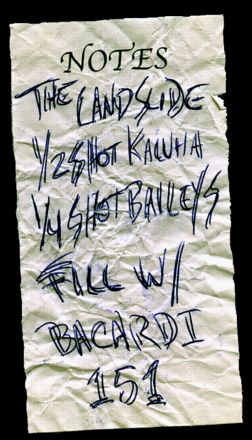 NOTES
THE LANDSLIDE
1/2 SHOT KALUHA
1/4 SHOT BAILEYS
FILL W/
BACARDI
151